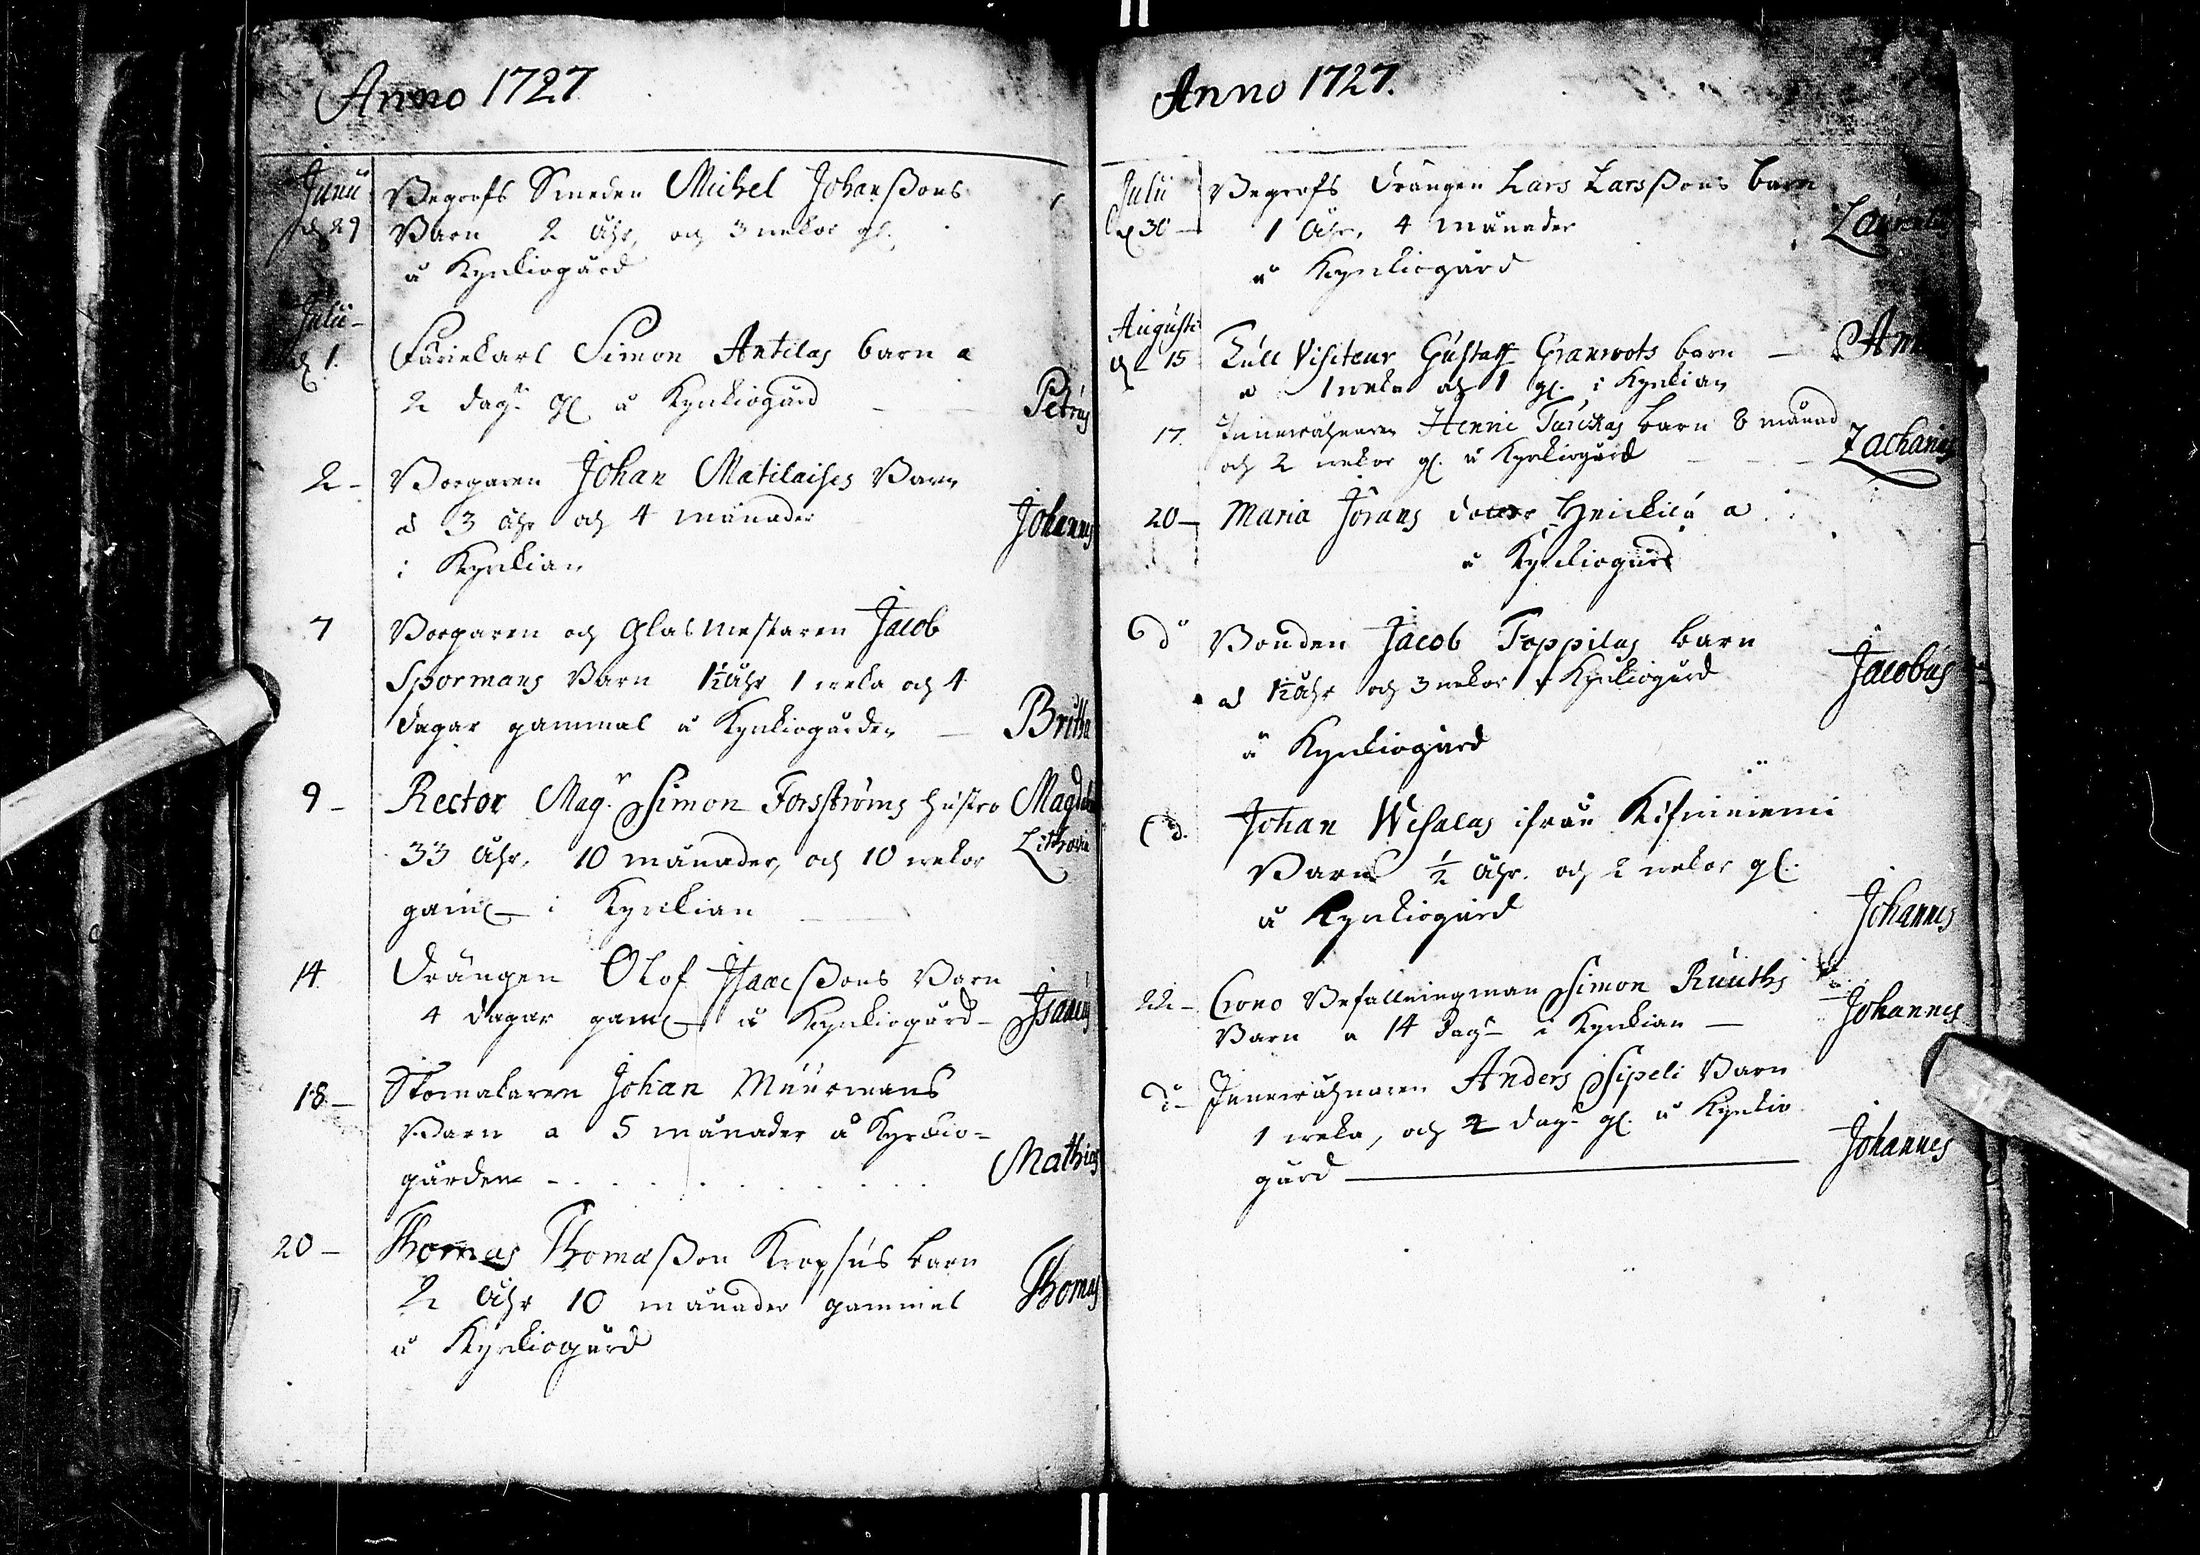 Anno 1727
Junii
d 29
Begrofs Smeden Michel Johanßons
Barn 2 åhr, och 3 wekor gl.
å Kyrkiogård
Julii
d 1.
Simon Antilas barn a
2 dagr gl. å Kyrkiogård
Petrus
2 - Borgaren Johan Matilaises Barn
a 3 åhr och 4 månader
Johannes
i Kyrkian
7 Borgaren och Glasmestaren Jacob
Spormans Barn 1½ åhr 1 weka och 4
dagar gammal å Kyrkiogården - Britha
9 - Rector Magr Simon Forsströms hustro Magdal
33 åhr, 10 månader, och 10 wekor
gaml i Kyrkian
14. Drängen Olof Isaacßons Barn
4 dagar gaml å Kyrkiogård - Isaacus
18 - Skomakaren Johan Muurmans
Barn a 5 månader å Kyrckio-
gården - Mathias
20 - Thomas Thomaßon Krapsus barn
2 åhr 10 månader gammal Thomas
å Kyrkiogård
Anno 1727.
Julii
d 30 -
Begrofs drängen Lars Larsßons barn
1 åhr, 4 månader
Laurentius
å Kyrkiogård
Augusti
d 15
Tull Visiteur Gustaff Granroots barn -
a 1 weka och 1 gl. i Kyrkian
17. Henric Turckas barn 8 månad
och 2 wekor gl. å Kyrkiogård - Zacharias
20 - Maria Jörans doter a
å Kyrkiogård
do Bonden Jacob Toppilas barn
a 1½ åhr och 3 wekor Kyrkiogård
Jacobus
å Kyrkiogård
d. Johan Wesalas ifrån Kisniniemi
Barn ½ åhr. och 2 wekor gl.
å Kyrkiogård
Johannes
22 - Crono Befallningsman Simon Ruuths
Barn a 14 dagr i Kyrkian - Johannes
do - Anders Sipeli Barn
1 weka, och 2 dagr gl. å Kyrkio
gård
Johannes